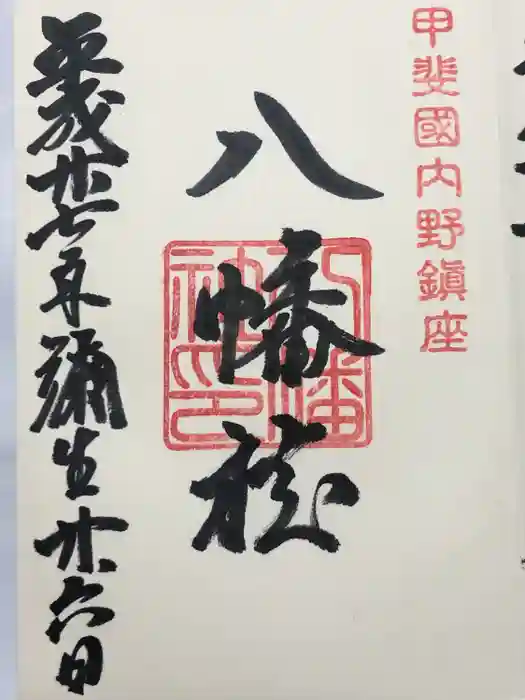 甲斐國内野鎮座
八幡社
八幡社印
平成廿七年彌生廿六日